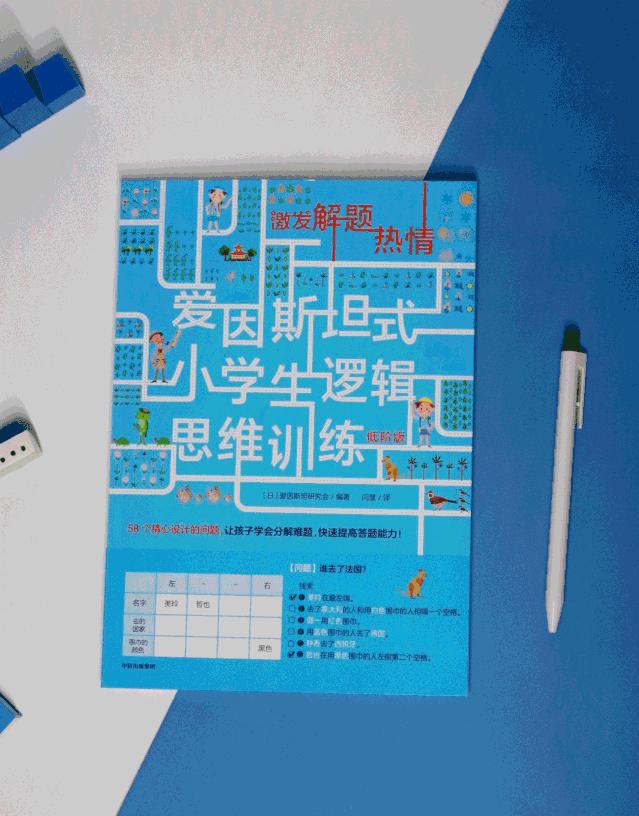 激发解题
热情
爱因斯坦式
小学生逻辑
思维训练 低阶版
[日]爱因斯坦研究会/编著 闫慧/译
58个精心设计的问题,让孩子学会分解难题,快速提高答题能力!
【问题】谁去了法国?
线索
左 - - 右
名字 美玲 哲也
去的国家
围巾的颜色 黑色
❶美玲在最左端。
❷去了意大利的人和用白色围巾的人相隔一个空格。
用红色围巾。
❹用蓝色围巾的人去了德国。
❺静香去了西班牙。
❻哲也在用黑色围巾的人左侧第二个空格。
中信出版集团